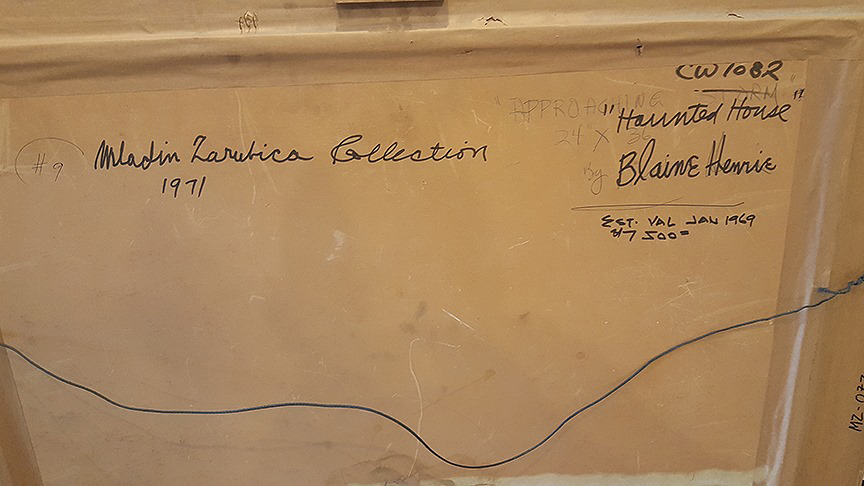 CW1082
"APPROACHING STORM"
"Haunted House"
24" X 36
By Blaine Henrie
#9
Mladin Zarubica Collection
1971
EST. VAL JAN 1969
$7 500=